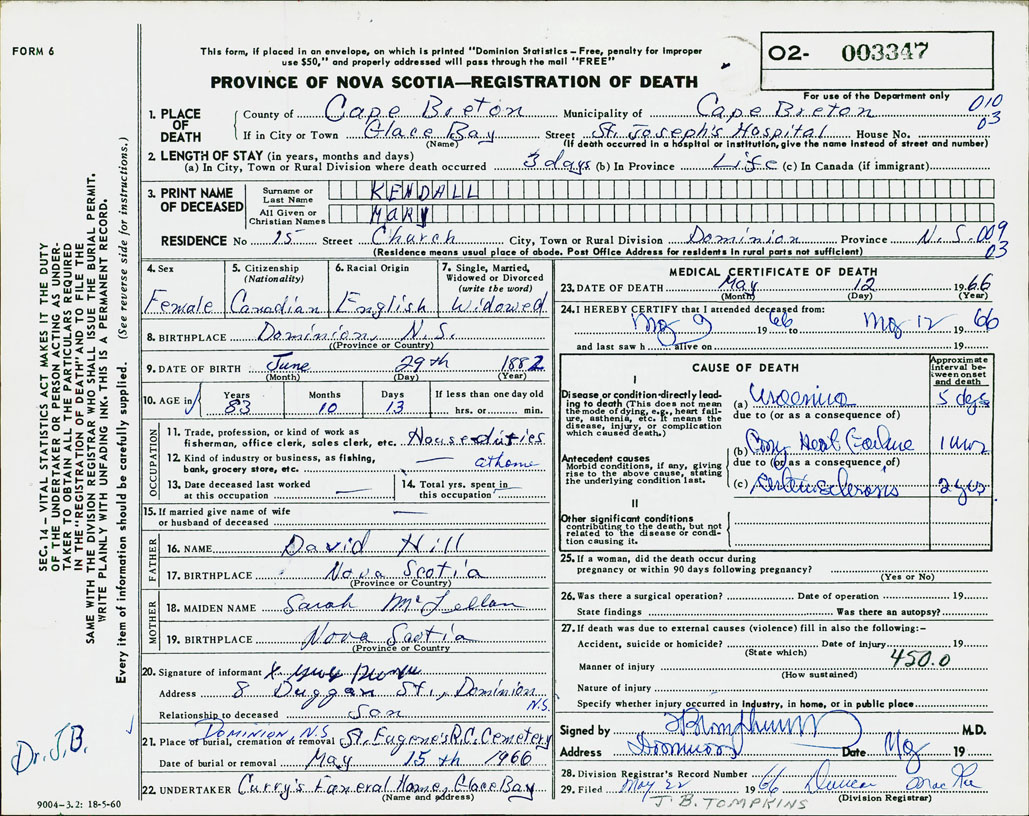 FORM 6
This form, if placed in an envelope, on which is printed "Dominion Statistics – Free, penalty for improper
use $50," and properly addressed will pass through the mail "FREE"
O2- 003347
PROVINCE OF NOVA SCOTIA—REGISTRATION OF DEATH
For use of the Department only
010
03
1. PLACE OF DEATH
County of Cape Breton Municipality of Cape Breton
If in City or Town Glace Bay Street St. Joseph's Hospital House No.
(Name) (If death occurred in a hospital or institution, give the name instead of street and number)
2. LENGTH OF STAY (in years, months and days)
(a) In City, Town or Rural Division where death occurred 3 days (b) In Province Life (c) In Canada (if immigrant)
3. PRINT NAME OF DECEASED
Surname or Last Name KENDALL
All Given or Christian Names MARY
RESIDENCE No 15 Street Church City, Town or Rural Division Dominion Province N.S. 009
03
(Residence means usual place of abode. Post Office Address for residents in rural parts not sufficient)
4. Sex
Female
5. Citizenship (Nationality)
Canadian
6. Racial Origin
English
7. Single, Married, Widowed or Divorced (write the word)
Widowed
8. BIRTHPLACE Dominion, N.S.
(Province or Country)
9. DATE OF BIRTH June 29th 1882
(Month) (Day) (Year)
10. AGE in Years 83 Months 10 Days 13 If less than one day old hrs. or min.
OCCUPATION
11. Trade, profession, or kind of work as
fisherman, office clerk, sales clerk, etc. Houseduties
12. Kind of industry or business, as fishing,
bank, grocery store, etc. — at home
13. Date deceased last worked
at this occupation —
14. Total yrs. spent in
this occupation —
15. If married give name of wife
or husband of deceased —
FATHER
16. NAME David Hill
17. BIRTHPLACE Nova Scotia
(Province or Country)
MOTHER
18. MAIDEN NAME Sarah McLellan
19. BIRTHPLACE Nova Scotia
(Province or Country
20. Signature of informant X
Address 8 Duggan St., Dominion N.S.
Relationship to deceased son
DOMINION N.S
21. Place of burial, cremation or removal St. Eugene's R.C. Cemetery
Date of burial or removal May 15th 1966
22. UNDERTAKER Curry's Funeral Home, Glace Bay
(Name and address)
MEDICAL CERTIFICATE OF DEATH
23. DATE OF DEATH May 12 1966
(Month) (Day) (Year)
24. I HEREBY CERTIFY that I attended deceased from:
May 9 1966 to May 12 1966
and last saw h alive on 19
CAUSE OF DEATH
Approximate interval between onset and death
I
Disease or condition directly leading to death (This does not mean the mode of dying, e.g., heart failure, asthenia, etc. It means the disease, injury, or complication which caused death.)
(a) Uraemia 5 dys
due to (or as a consequence of)
Antecedent causes
Morbid conditions, if any, giving rise to the above cause, stating the underlying condition last.
(b) Cong Heart Failure
due to (or as a consequence of)
(c) Arteriosclerosis 2 yrs
II
Other significant conditions
contributing to the death, but not related to the disease or condition causing it.
25. If a woman, did the death occur during
pregnancy or within 90 days following pregnancy?
(Yes or No)
26. Was there a surgical operation? Date of operation 19
State findings Was there an autopsy?
27. If death was due to external causes (violence) fill in also the following:–
Accident, suicide or homicide? Date of injury 19
(State which)
450.0
Manner of injury
(How sustained)
Nature of injury
Specify whether injury occurred in industry, in home, or in public place
Signed by M.D.
Address Dominion Date May 19
28. Division Registrar's Record Number
29. Filed May 22 1966 Duncan MacKie
J. B. TOMPKINS (Division Registrar)
SEC. 14 – VITAL STATISTICS ACT MAKES IT THE DUTY
OF THE UNDERTAKER OR PERSON ACTING AS UNDERTAKER TO OBTAIN ALL THE PARTICULARS REQUIRED
IN THE "REGISTRATION OF DEATH" AND TO FILE THE
SAME WITH THE DIVISION REGISTRAR WHO SHALL ISSUE THE BURIAL PERMIT.
WRITE PLAINLY WITH UNFADING INK. THIS IS A PERMANENT RECORD.
Every item of information should be carefully supplied. (See reverse side for instructions.)
Dr. J.B.
9004–3.2: 18-5-60